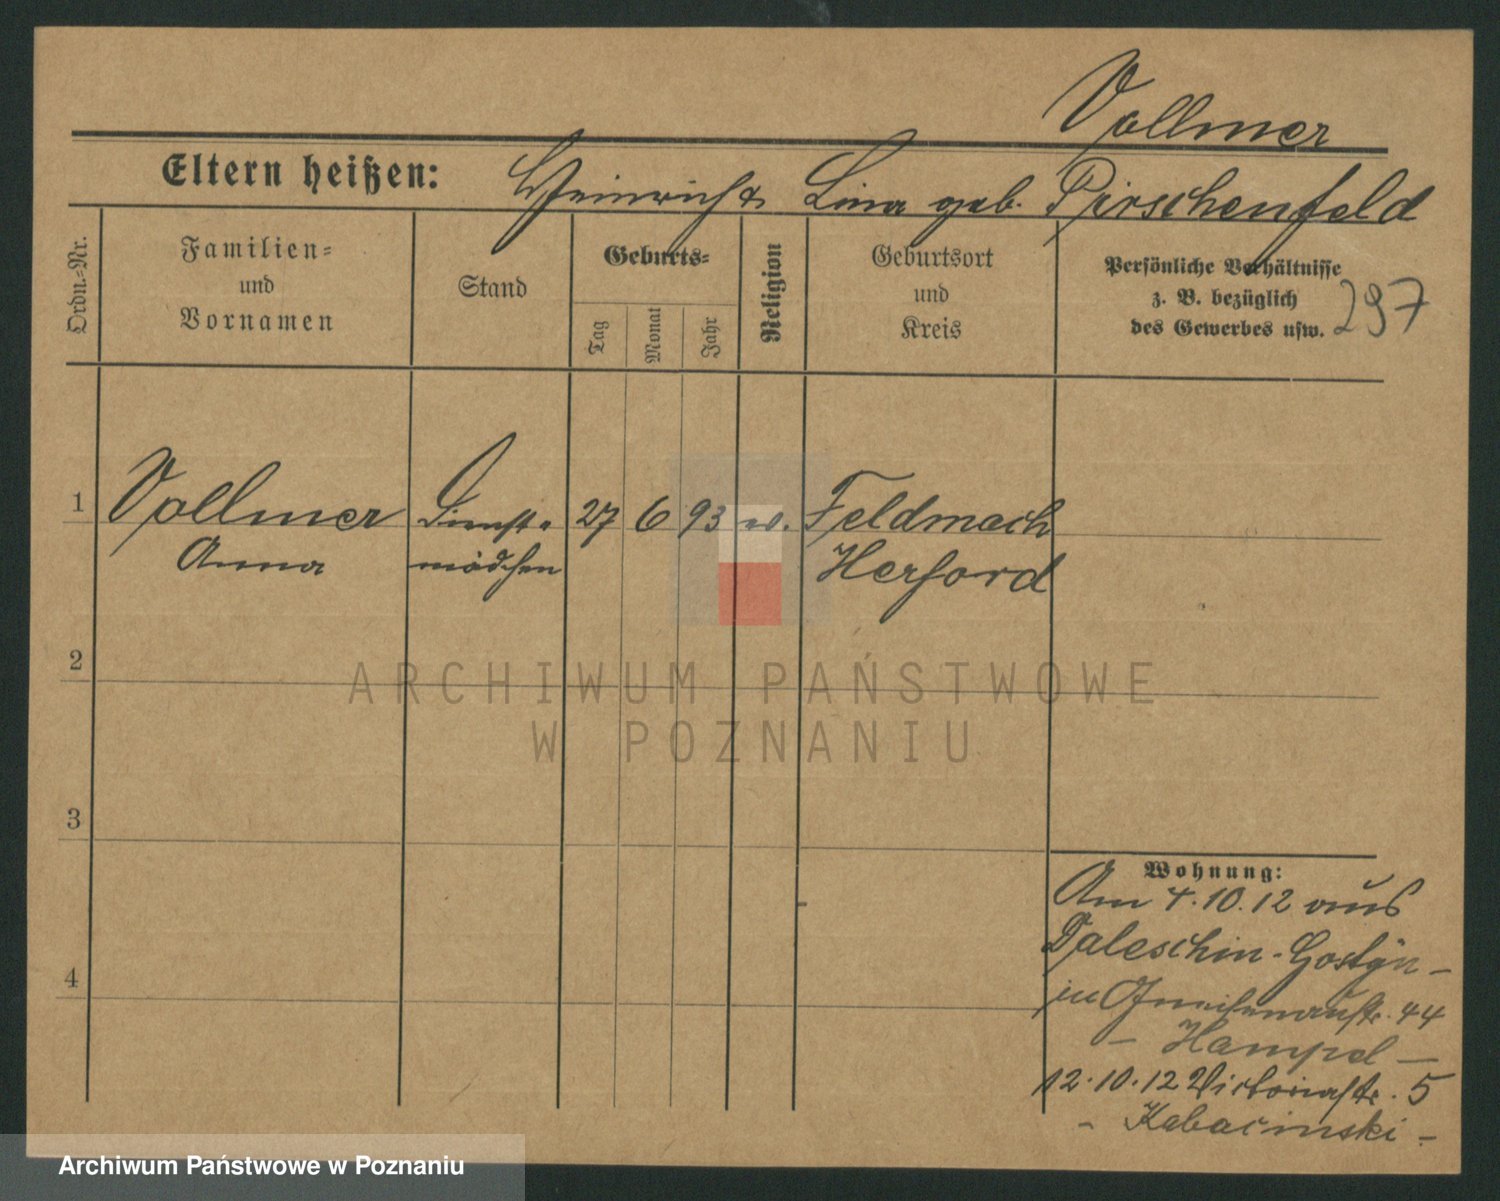 Vollmer
Eltern heißen: Heinrich & Lina geb. Pirschenfeld
Ordn.-Nr.
Familien-
und
Vornamen
Stand
Geburts-
Tag
Monat
Jahr
Religion
Geburtsort
und
Kreis
Persönliche Verhältnisse
z. B. bezüglich
des Gewerbes usw.
297
1 Vollmer Dienst- 27 6 93 ev. Feldmach
Anna mädchen Herford
2
ARCHIWUM PAŃSTWOWE
W POZNANIU
3
4
Wohnung:
Am 4.10.12 aus
Daleschin-Gostyn-
in Gneisenaustr. 44
- Hampel -
12.10.12 Victoriastr. 5
- Kabacinski -
Archiwum Państwowe w Poznaniu